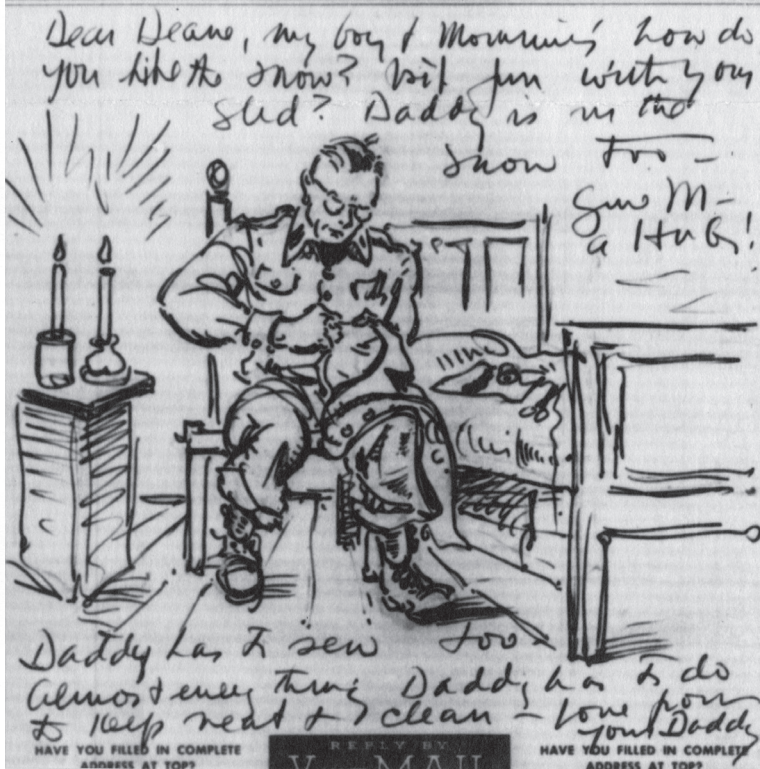 Dear Deane, my boy & Mommie's how do
you like the snow? Is it fun with your
sled? Daddy is in the
snow too —
Give M—
a HuG!
Daddy has to sew too —
almost every thing Daddy has to do
to keep neat & clean — Love from
your Daddy
HAVE YOU FILLED IN COMPLETE
ADDRESS AT TOP?
REPLY BY
V MAIL
HAVE YOU FILLED IN COMPLETE
ADDRESS AT TOP?